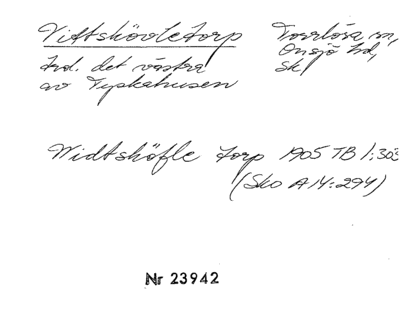 Vittskövletorp Torrlösa sn,
Onsjö hd,
hd. det västra Sk
av Tyskahusen
Widtsköfle torp 1905 TB 1:303
(Sko A 14:294)
Nr 23942